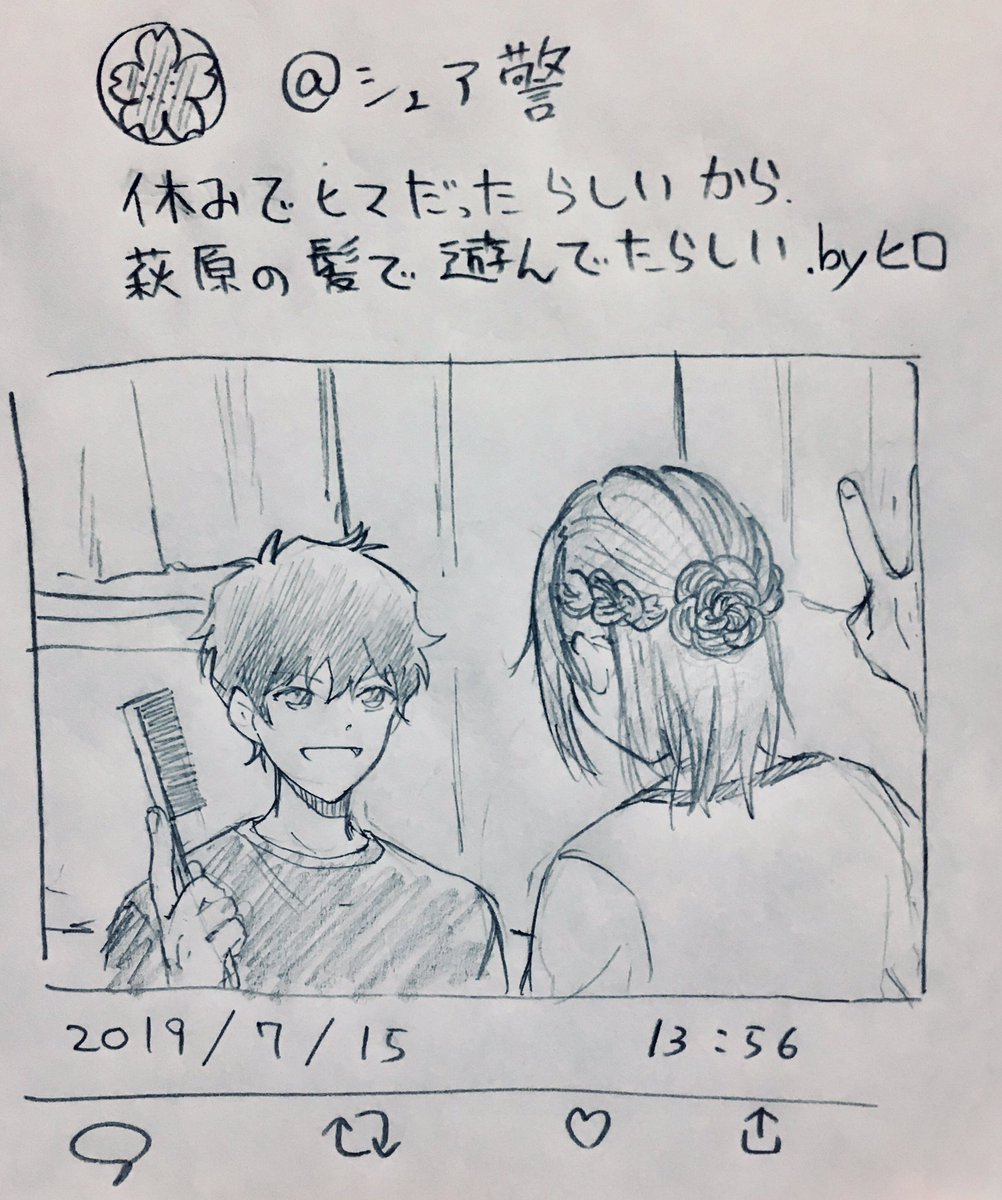 @シェア警
休みでヒマだったらしいから.
萩原の髪で遊んでたらしい.byヒロ
2019/7/15 13:56